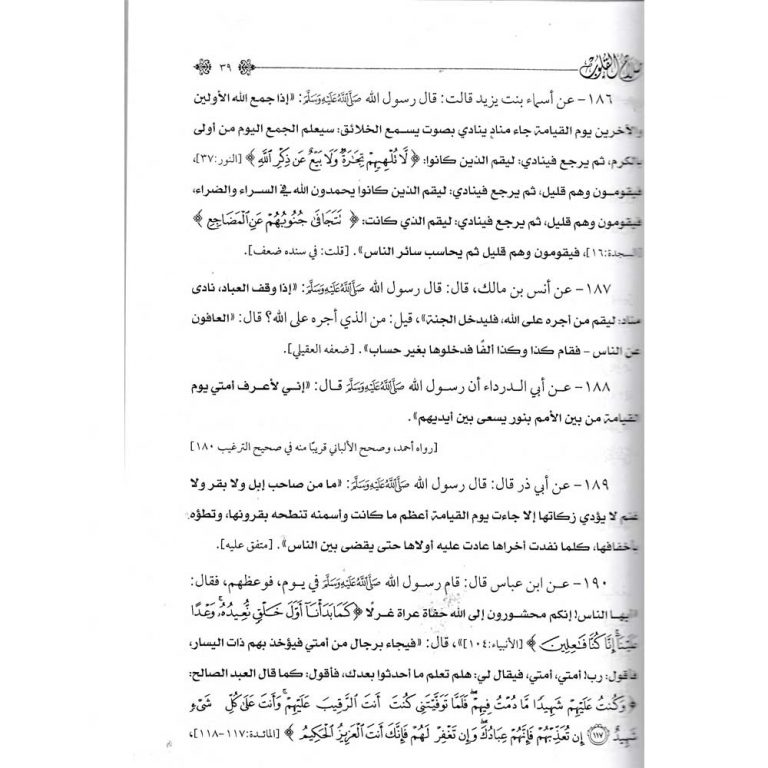 القلوب ٣٩
١٨٦- عن أسماء بنت يزيد قالت: قال رسول الله ﷺ: «إذا جمع الله الأولين
والآخرين يوم القيامة جاء مناد ينادي بصوت يسمع الخلائق: سيعلم الجمع اليوم من أولى
بالكرم، ثم يرجع فينادي: ليقم الذين كانوا: ﴿لَّا تُلْهِيهِمْ تِجَٰرَةٌ وَلَا بَيْعٌ عَن ذِكْرِ ٱللَّهِ﴾ [النور:٣٧]،
فيقومون وهم قليل، ثم يرجع فينادي: ليقم الذين كانوا يحمدون الله في السراء والضراء،
فيقومون وهم قليل، ثم يرجع فينادي: ليقم الذي كانت: ﴿تَتَجَافَىٰ جُنُوبُهُمْ عَنِ ٱلْمَضَاجِعِ﴾
[السجدة:١٦]، فيقومون وهم قليل ثم يحاسب سائر الناس». [قلت: في سنده ضعف].
١٨٧- عن أنس بن مالك، قال: قال رسول الله ﷺ: «إذا وقف العباد، نادى
مناد: ليقم من أجره على الله، فليدخل الجنة»، قيل: من الذي أجره على الله؟ قال: «العافون
عن الناس - فقام كذا وكذا ألفًا فدخلوها بغير حساب». [ضعفه العقيلي].
١٨٨- عن أبي الدرداء أن رسول الله ﷺ قال: «إني لأعرف أمتي يوم
القيامة من بين الأمم بنور يسعى بين أيديهم».
[رواه أحمد، وصحح الألباني قريبًا منه في صحيح الترغيب ١٨٠]
١٨٩- عن أبي ذر قال: قال رسول الله ﷺ: «ما من صاحب إبل ولا بقر ولا
غنم لا يؤدي زكاتها إلا جاءت يوم القيامة أعظم ما كانت وأسمنه تنطحه بقرونها، وتطؤه
بأخفافها، كلما نفدت أخراها عادت عليه أولاها حتى يقضى بين الناس». [متفق عليه].
١٩٠- عن ابن عباس قال: قام رسول الله ﷺ في يوم، فوعظهم، فقال:
«أيها الناس! إنكم محشورون إلى الله حفاة عراة غرلًا ﴿كَمَا بَدَأْنَآ أَوَّلَ خَلْقٍ نُّعِيدُهُۥ ۚ وَعْدًا
عَلَيْنَآ ۚ إِنَّا كُنَّا فَٰعِلِينَ﴾ [الأنبياء:١٠٤]»، قال: «فيجاء برجال من أمتي فيؤخذ بهم ذات اليسار،
فأقول: رب! أمتي، أمتي، فيقال لي: هلم تعلم ما أحدثوا بعدك، فأقول: كما قال العبد الصالح:
﴿وَكُنتُ عَلَيْهِمْ شَهِيدًا مَّا دُمْتُ فِيهِمْ ۖ فَلَمَّا تَوَفَّيْتَنِى كُنتَ أَنتَ ٱلرَّقِيبَ عَلَيْهِمْ ۚ وَأَنتَ عَلَىٰ كُلِّ شَىْءٍ
شَهِيدٌ ۝١١٧ إِن تُعَذِّبْهُمْ فَإِنَّهُمْ عِبَادُكَ ۖ وَإِن تَغْفِرْ لَهُمْ فَإِنَّكَ أَنتَ ٱلْعَزِيزُ ٱلْحَكِيمُ﴾ [المائدة:١١٧-١١٨]،